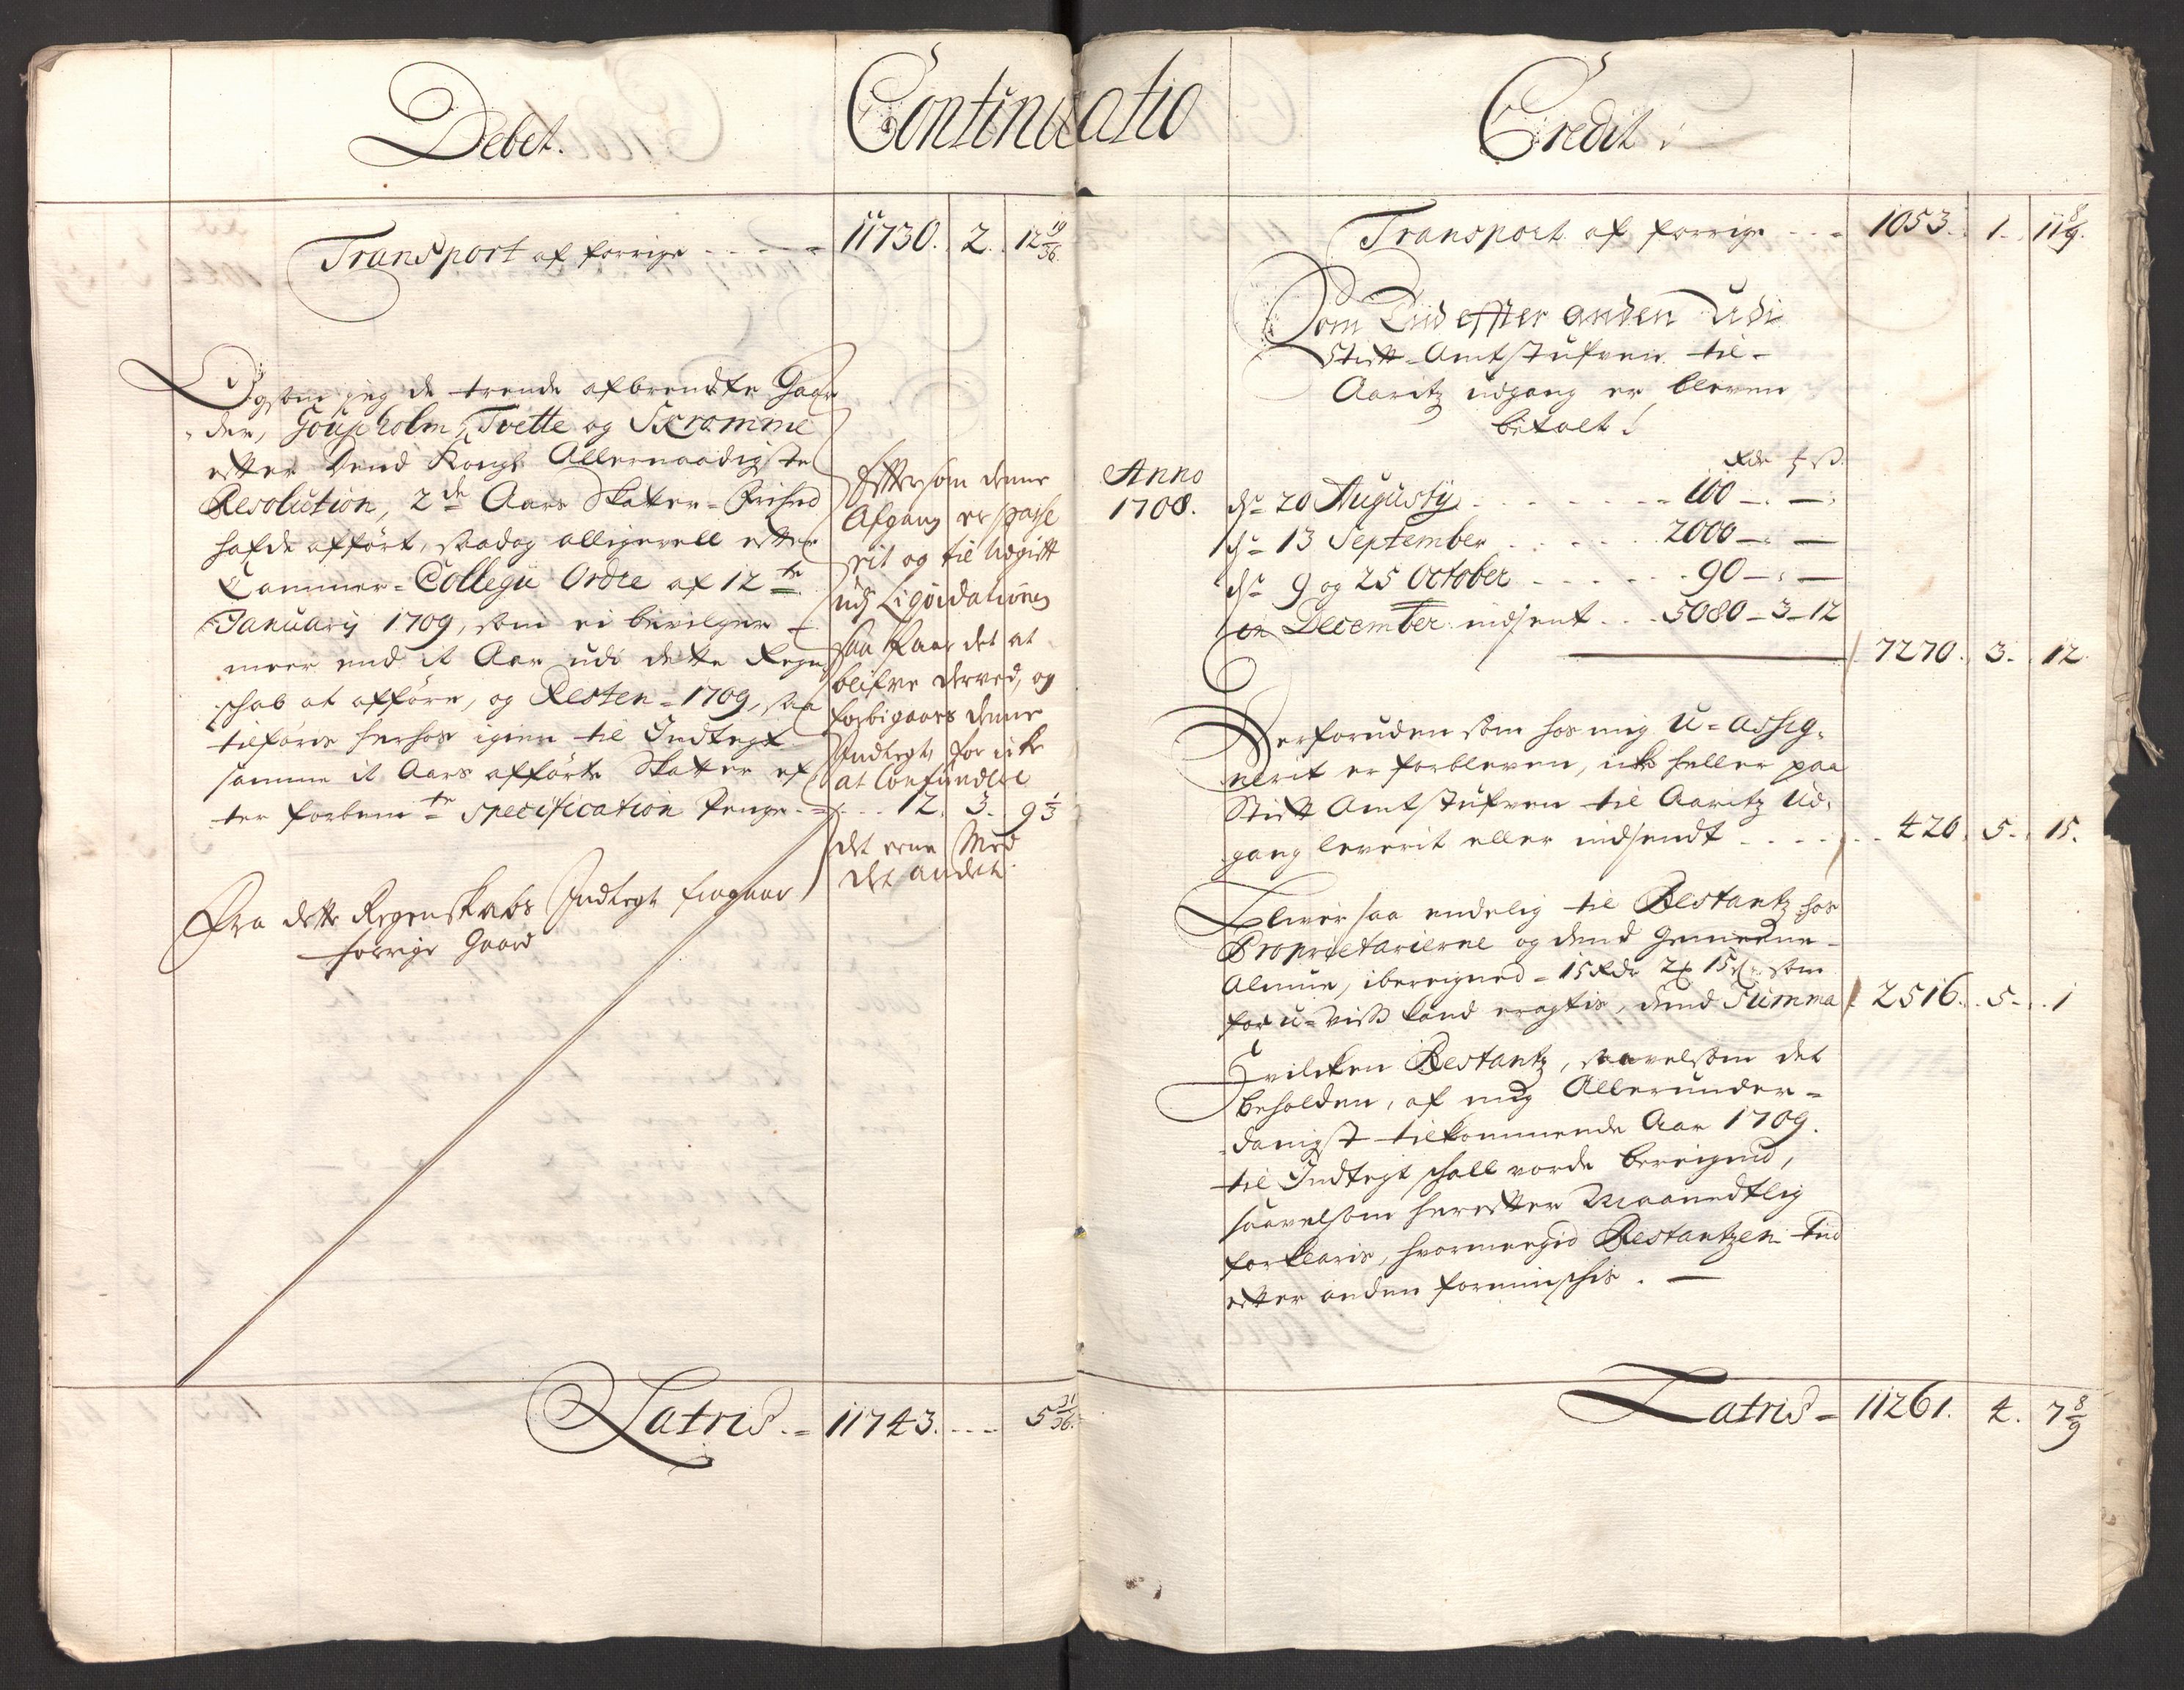 Debet.
Continuatio
Transport af forrige - - - - 11730. 2. 12 19/36
Og som jeg de trende afbrendte Gaar-
der, Goupholm, Tvette og Skramme
efter Dend Kongl: Allernaadigste
Resolution, 2de Aars Skatter-Frihed
hafde afført, saadog alligevell efter
Cammer-Collegii Ordre af 12te
January 1709, som ei bevilger
meer end it Aar udi dette Regn-
schab at afføre, og Resten 1709, saa
tilføris herhos igien til Indtegt
samme it Aars afførte Skatter ef-
ter forbemte Specification Penge - - 12. 3. 9 1/3
Eftersom denne
Afgang er passe-
rit og til Udgift
udj Liqvidationen
saa kaar det at
blifve derved, og
forbigaaes denne
Indtegt for icke
at Confundere
det eene Med
det andet.
Fra dette Regenskabs Indtegt fragaar
forrige Gaard
Latris. - 11743. - - - 5 31/36.
Credit.
Transport af forrige - - - 1053. 1. 11 8/9.
Som Tiid effter anden Udi
Stift-Amtstufven til
Aaritz udgang er bleven
betalt.
Rdr
Anno
1708. d. 20 Augusty - - - - - 100 - . -
d. 13 September - - - - 2000 - . -
d. 9 og 25 October - - - - - 90 - . -
in December indsent - - . 5080 - 3 - 12
7270. 3. 12.
Derforuden som hos mig U-assig-
nerit er forbleven, icke heller paa
Stift Amtstufven til Aaritz Ud-
gang leverit eller indsendt - - - - 420. 5. 15.
Bliver saa endelig til Restantz hos
Proprietarierne og dend gemeene
Almue, iberegned 15 Rdr 2 15 som
for u-viss kand eragtis, dend Summa 2516. 5. 1
Hvilcken Restantz, saavelsom det
beholden, af mig Allerunder-
danigst tilkommende Aar 1709.
til Indtegt schall vorde beregned,
saavelsom herefter Maanedtlig
forklaris, hvormegid Restantzen tiid
efter anden forminschis. -
Latris - 11261. 4. 7 8/9